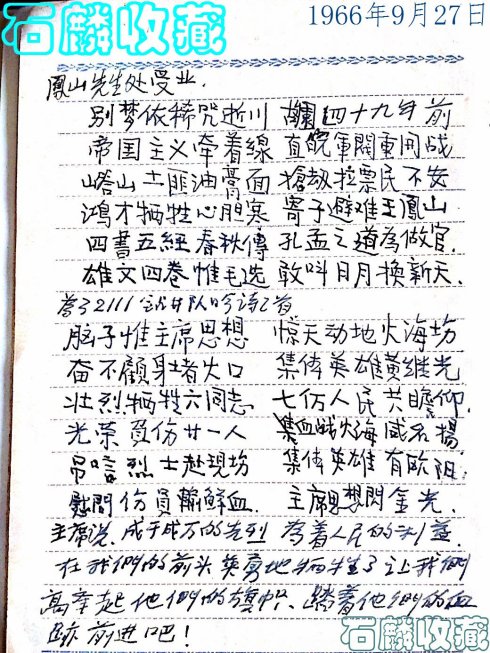 石麟收藏
1966年9月27日
鳳山先生处受业.
别梦依稀咒逝川 故園四十九年前
帝国主义牵着線 直皖軍閥重開战
山土匪油膏面 搶劫拉票民不安
鴻才牺牲心胆寒 寄子避难王鳳山
四書五經春秋傳 孔孟之道為做官.
雄文四卷惟毛选 敢叫日月換新天.
2111 队吟诗2首
脑子惟主席思想 惊天动地火海坊
奋不顧身堵火口 集体英雄黄继光
壮烈牺牲六同志 七亿人民共瞻仰.
光荣負伤廿一人 血战火海威名揚
吊唁烈士赴現坊 集体英雄有欧阳
慰問伤員輸鮮血. 主席思想閃金光.
主席说. 成千成万的先烈 為着人民的利益.
在我們的前头英勇地牺牲了让我們
高举起他們的旗帜、踏着他們的血
跡前進吧!
石麟收藏